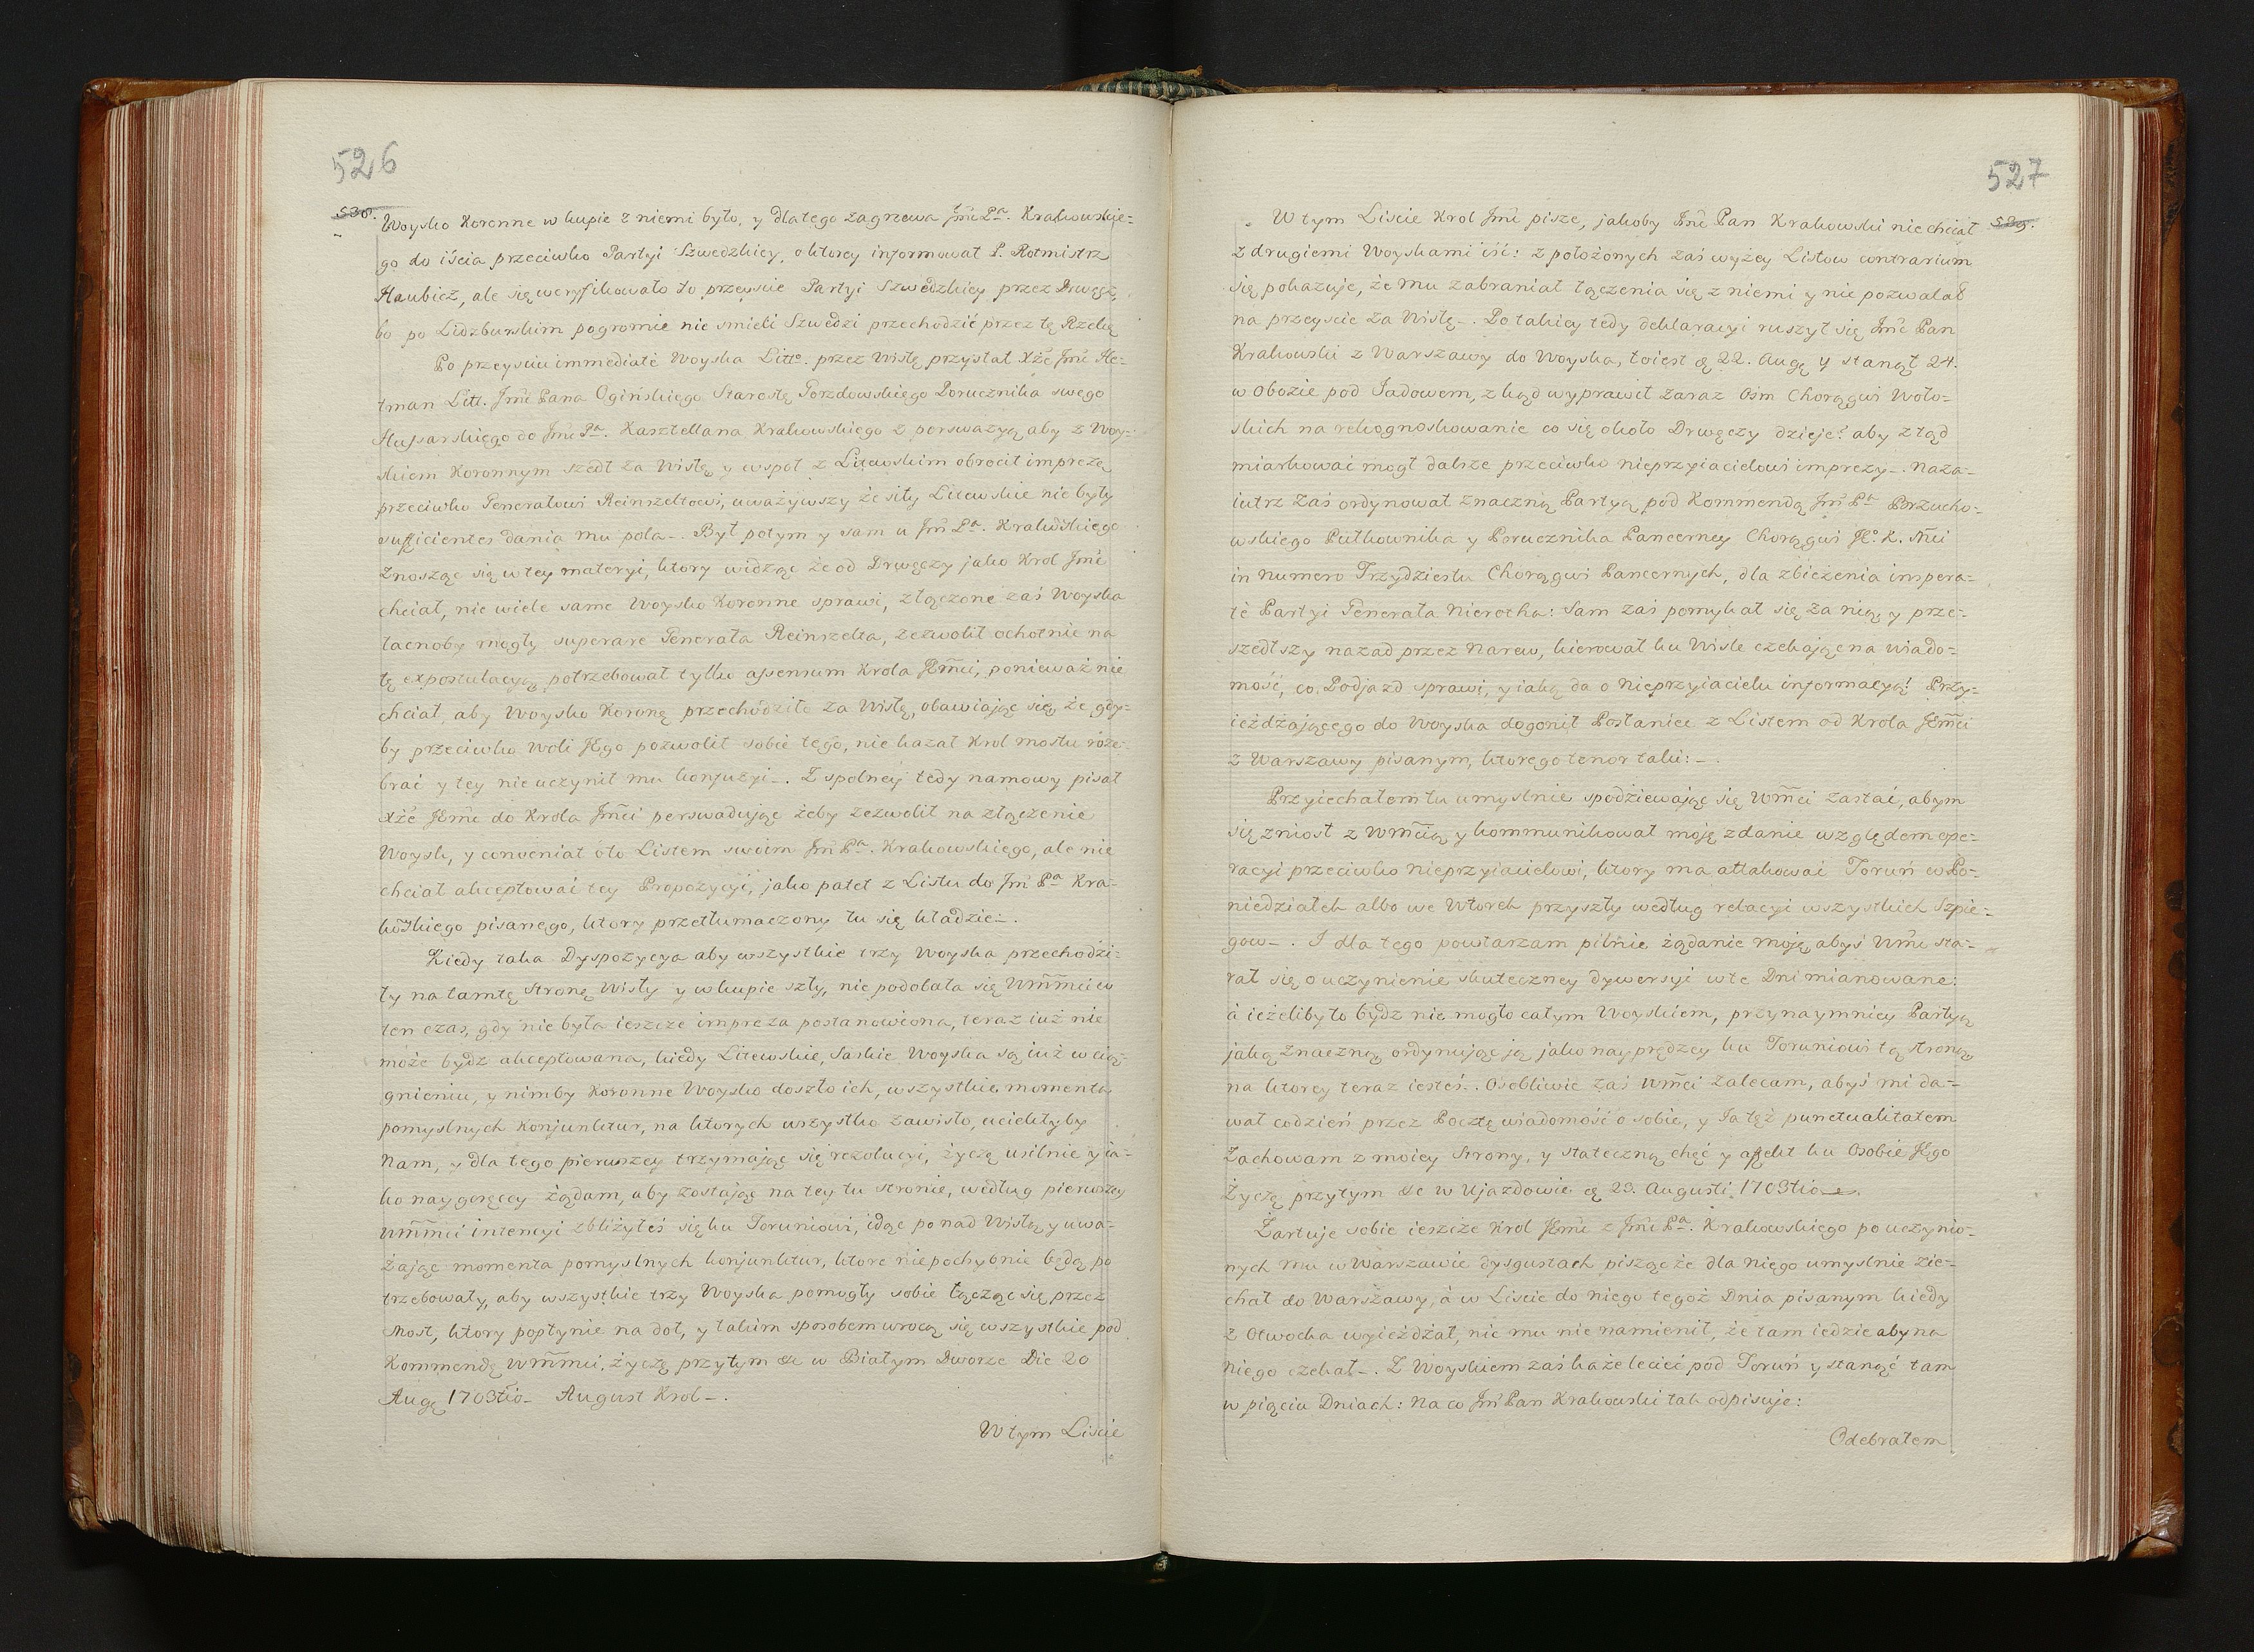 526
538.
Woysko Koronne w kupie z niemi było, y dlatego zagrzewa Jmći Pa. Krakowskie=
go do iścia przeciwko Partyi Szwedzkiey, o ktorey informował P. Rotmistrz
Haubicz, ale się weryfikowało to przeyście Partyi Szwedzkiey przez Drwęcz,
bo po Lidzburskim pogromie nie smieli Szwedzi przechodzić przez tę Rzekę
Po przeysciu immediatè Woyska Litto. przez Wisłę przysłał Xże Jmć He=
tman Litt. Jmći Pana Ogińskiego Starostę Gorzdowskiego Porucznika swego
Hussarskiego do Jmći Pa. Kasztellana Krakowskiego z perswazyą aby z Woy=
skiem Koronnym szedł za Wisłę y wspoł z Litewskim obrocił imprezę
przeciwko Generałowi Reinszeltowi, uważywszy że siły Litewskie nie były
sufficientes dania mu pola_. Był potym y sam u Jmć Pa. Krakowskiego
znosząc się w tey materyi, ktory widząc że od Drwęczy jako Krol Jmć
chciał, nie wiele same Woysko Koronne sprawi, złączone zaś Woyska
łacnoby mogły superare Generała Reinszelta, zezwolił ochotnie na
tę expostulacyą potrzebował tylko assensum Krola JEmći, ponieważ nie
chciał, aby Woysko Koronę przechodziło za Wisłę, obawiając się że gdy=
by przeciwko woli JEgo pozwolił sobie tego, nie kazał Krol mostu roze=
brać y tey nie uczynił mu konfuzyi_. Z spolney tedy namowy pisał
Xże JEmć do Krola Jmći perswadując żeby zezwolił na złączenie
Woysk, y conveniał oto Listem swoim Jmć Pa. Krakowskiego, ale nie
chciał akceptować tey Propozycyi, jako patet z Listu do Jmć Pa Kra=
kowskiego pisanego, ktory przetłumaczony tu się kładzie_.
Kiedy taka Dyspozycya aby wszystkie trzy Woyska przechodzi=
ły na tamtę stronę Wisły y w kupie szły, nie podobała się Wmmći w
ten czas, gdy nie była ieszcze impreza postanowiona, teraz iuż nie
może bydz akceptowana, kiedy Litewskie, Saskie Woyska są iuż w cią=
gnieniu, y nimby Koronne Woysko doszło ich, wszystkie momenta
pomyslnych Konjunktur, na ktorych wszystko zawisło, uciekłyby
Nam, y dla tego pierwszey trzymając się rezolucyi, życzę usilnie y ia=
ko naygoręcey żądam, aby zostając na tey tu stronie, według pierwszey
Wmmći intencyi zbliżyłeś się ku Toruniowi, idąc ponad Wisłą y uwa=
żając momenta pomyslnych konjunktur, ktore niepochybnie będą po
trzebowały, aby wszystkie trzy Woyska pomogły sobie łącząc się przez
Most, ktory popłynie na doł, y takim sposobem wrocą się wszystkie pod
Kommendę Wmmći, życzę przytym &c w Białym Dworze Die 20
Augę 1703tio_ August Krol_.
W tym Liscie
527
539.
W tym Liscie Krol Jmć pisze, jakoby Jmć Pan Krakowski nie chciał
z drugiemi Woyskami iść: z położonych zaś wyżey Listow contrarium
się pokazuje, że mu zabraniał łączenia się z niemi y nie pozwalał
na przeyscie za Wisłę_. Po takiey tedy deklaracyi ruszył się Jmć Pan
Krakowski z Warszawy do Woyska, to iest ę 22. Augę y stanął 24.
w Obozie pod Jadowem, zkąd wyprawił zaraz Ośm Chorągwi Woło=
skich na rekognoskowanie co się około Drwęczy dzieje? aby ztąd
miarkować mogł dalsze przeciwko nieprzyiacielowi imprezy_. Naza=
iutrz zaś ordynował znaczną Partyą pod Kommendą Jmć Pa Brzucho=
wskiego Pułkownika y Porucznika Pancerney Chorągwi JEo. K. Mći
in numero Trzydziestu Chorągwi Pancernych, dla zbieżenia inspera=
tè Partyi Generała Nierotha: Sam zaś pomykał się za nią y prze=
szedłszy nazad przez Narew, kierował ku Wiśle czekając na wiado=
mość, co Podjazd sprawi, y iaką da o Nieprzyiacielu informacyą! Przy=
ieżdżającego do Woyska dogonił Posłaniec z Listem od Krola JEmći
z Warszawy pisanym, ktorego tenor taki: _.
Przyiechałem tu umyslnie spodziewając się Wmći zastać, abym
się zniosł z Wmćią y kommunikował moję zdanie względem ope=
racyi przeciwko nieprzyiacielowi, ktory ma attakować Toruń w Po=
niedziałek albo we Wtorek przyszły według relacyi wszystkich Szpie=
gow_. I dla tego powtarzam pilnie żądanie moję, abyś Wmć sta=
rał się o uczynienie skuteczney dywersyi w te Dni mianowane:
à ieżeliby to bydz nie mogło całym Woyskiem, przynaymniey Partyą
jaką znaczną ordynując ją jako nayprędzey ku Toruniowi tą stroną
na ktorey teraz iesteś_. Osobliwie zaś Wmći zalecam, abyś mi da=
wał codzień przez Pocztę wiadomość o sobie, y Ja też punctualitatem
zachowam z moiey strony, y stateczną chęć y affekt ku Osobie JEgo
Życzę przytym &c w Ujazdowie ę 23. Augusti 1703tio_.
Żartuje sobie ieszcze Krol JEmć z Jmći Pa. Krakowskiego po uczynio=
nych mu w Warszawie dysgustach pisząc że dla niego umyslnie zie=
chał do Warszawy, à w Liscie do niego tegoż Dnia pisanym kiedy
z Otwocka wyieżdżał, nic mu nie namienił, że tam iedzie aby na
niego czekał_. Z Woyskiem zaś każe lecieć pod Toruń y stanąć tam
w pięciu Dniach: Na co Jmć Pan Krakowski tak odpisuje:
Odebrałem